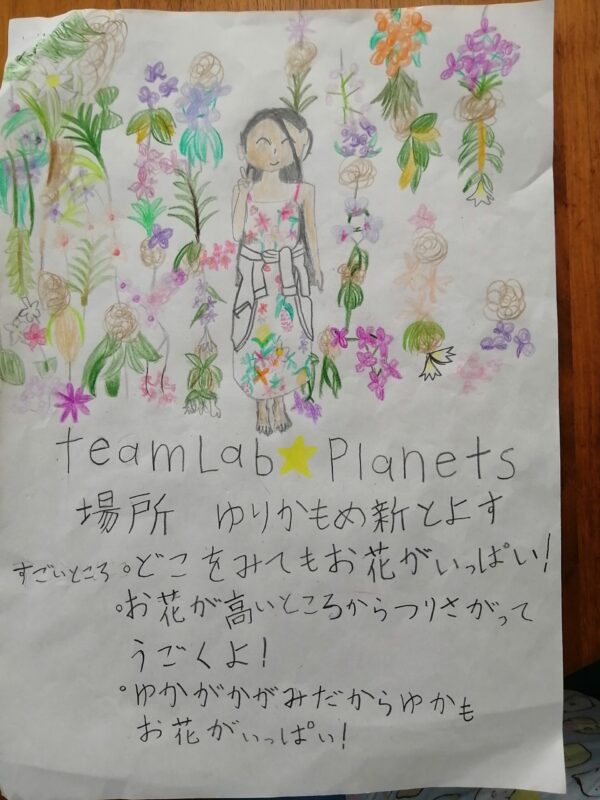 teamLab★Planets
場所 ゆりかもめ新とよす
すごいところ °どこをみてもお花がいっぱい!
°お花が高いところからつりさがって
うごくよ!
°ゆかがかがみだからゆかも
お花がいっぱい!